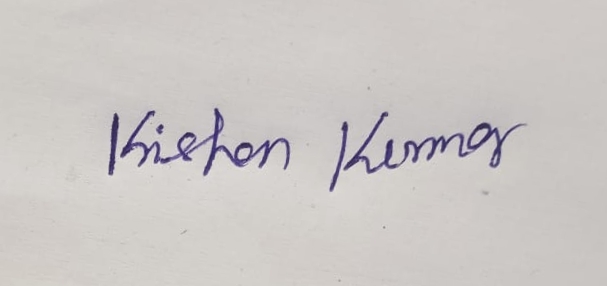 Kishan Kumar